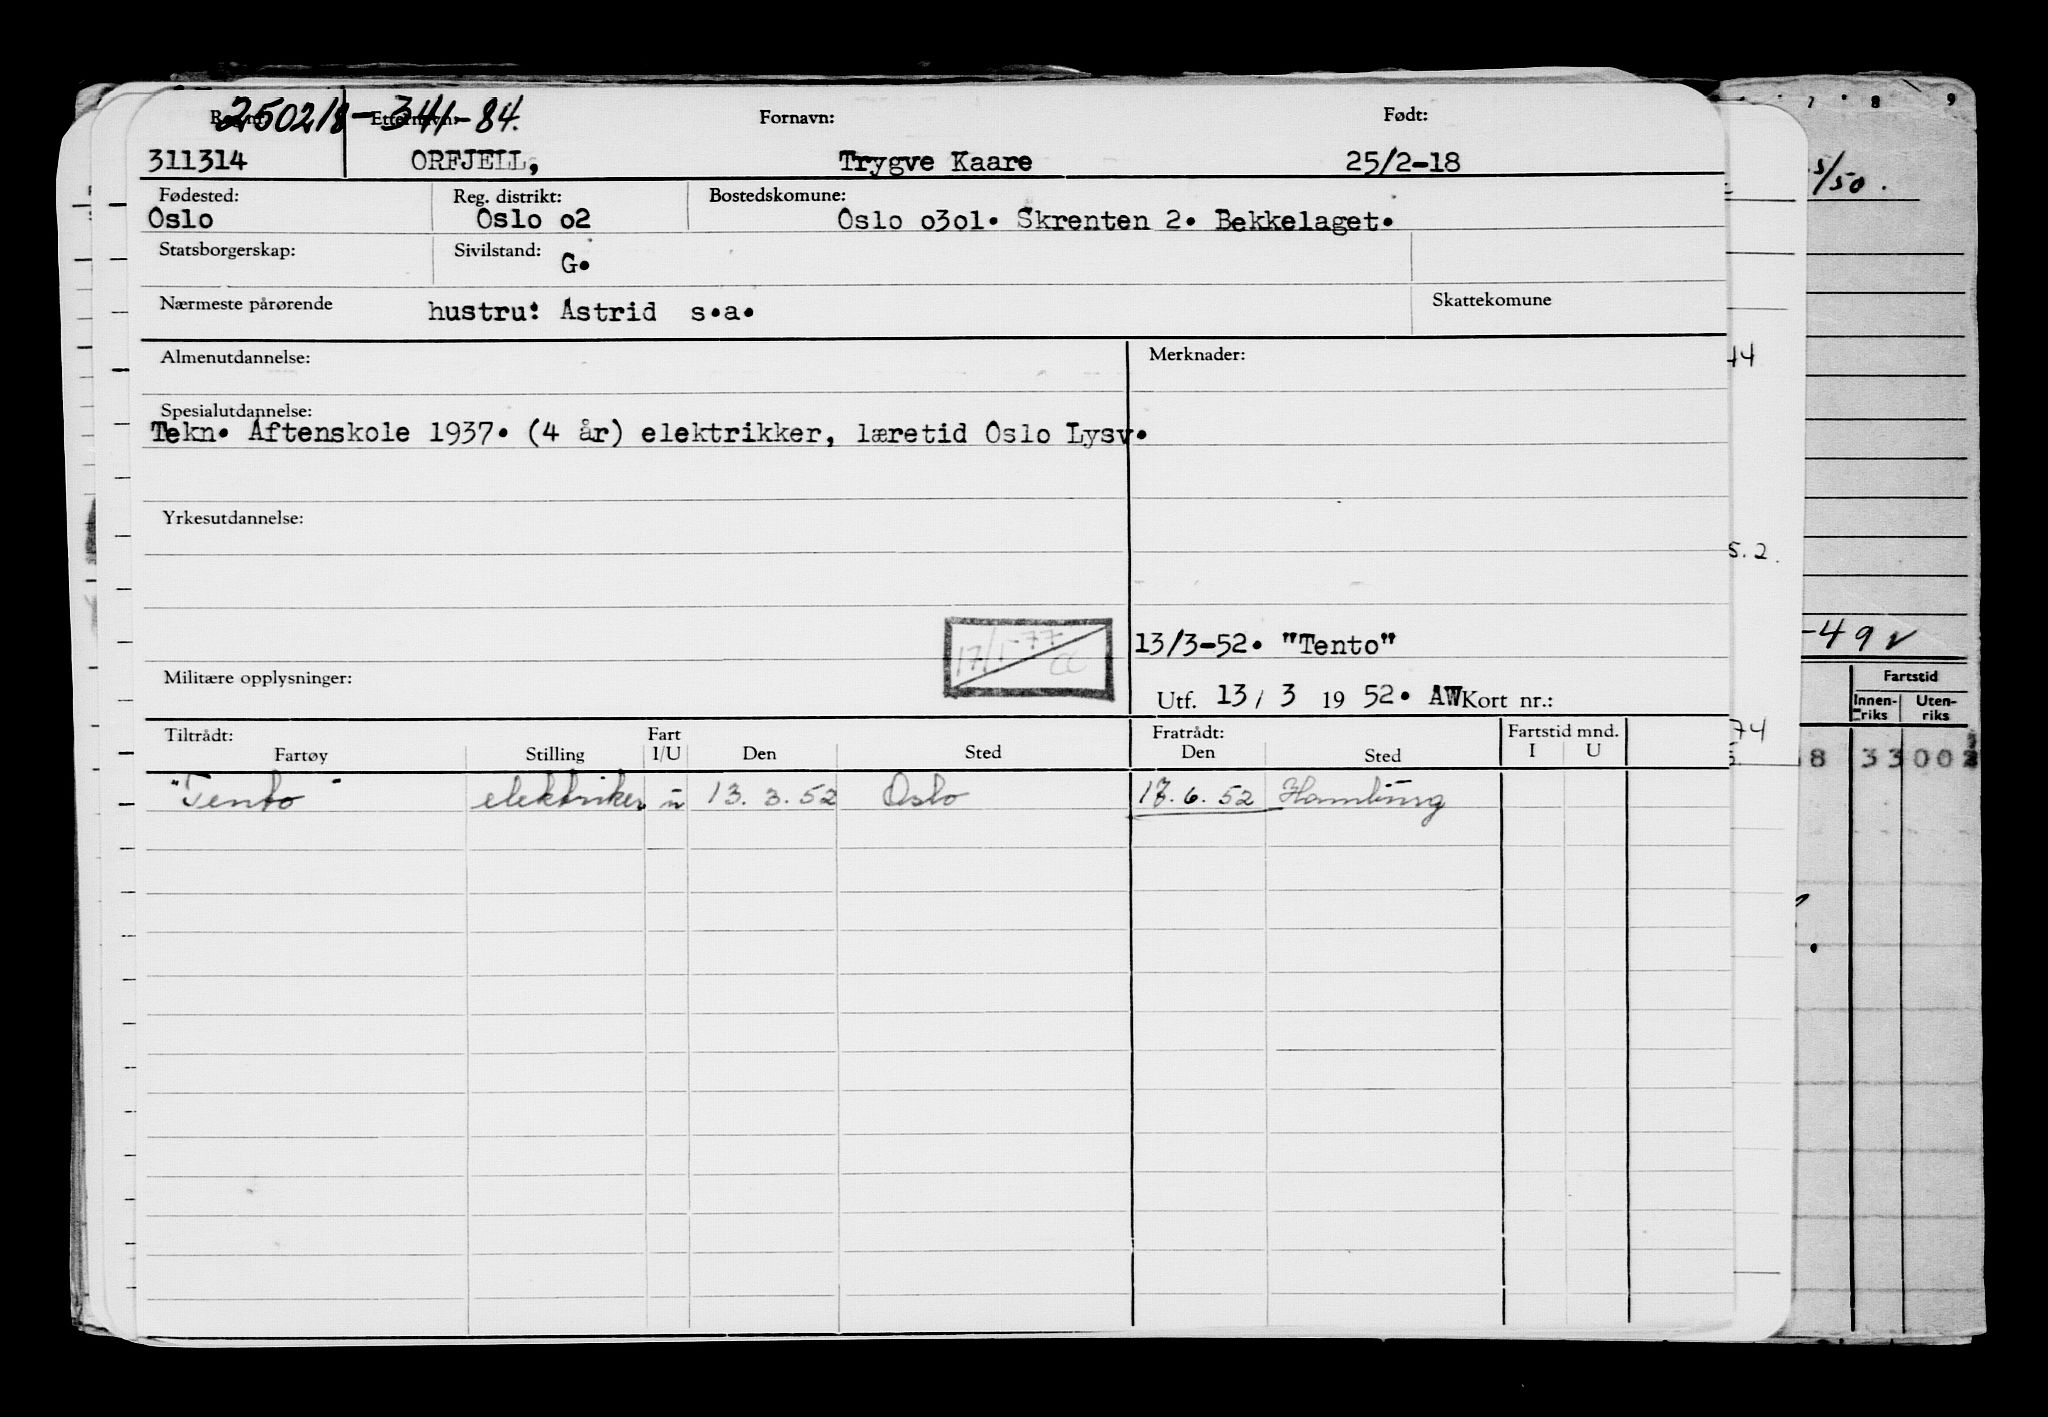 250218-341-84.
Etternavn: Fornavn: Født:
311314 ORFJELL, Trygve Kaare 25/2-18
Fødested: Reg. distrikt: Bostedskomune:
Oslo Oslo o2 Oslo o3o1. Skrenten 2. Bekkelaget.
Statsborgerskap: Sivilstand: G.
Nærmeste pårørende hustru: Astrid s.a. Skattekomune
Almenutdannelse: Merknader:
Spesialutdannelse:
Tekn. Aftenskole 1937. (4 år) elektrikker, læretid Oslo Lysv.
Yrkesutdannelse:
17/1-77
13/3-52. "Tento"
Militære opplysninger:
Utf. 13 / 3 19 52. AW Kort nr.:
Tiltrådt: Fart Fratrådt: Fartstid mnd.
Fartøy Stilling I/U Den Sted Den Sted I U
"Tento" elektriker u 13. 3. 52 Oslo 17. 6. 52 Hamburg
7 8 9
5/50.
44
5.2.
-49
Fartstid
Innenriks Utenriks
74
8 33 00